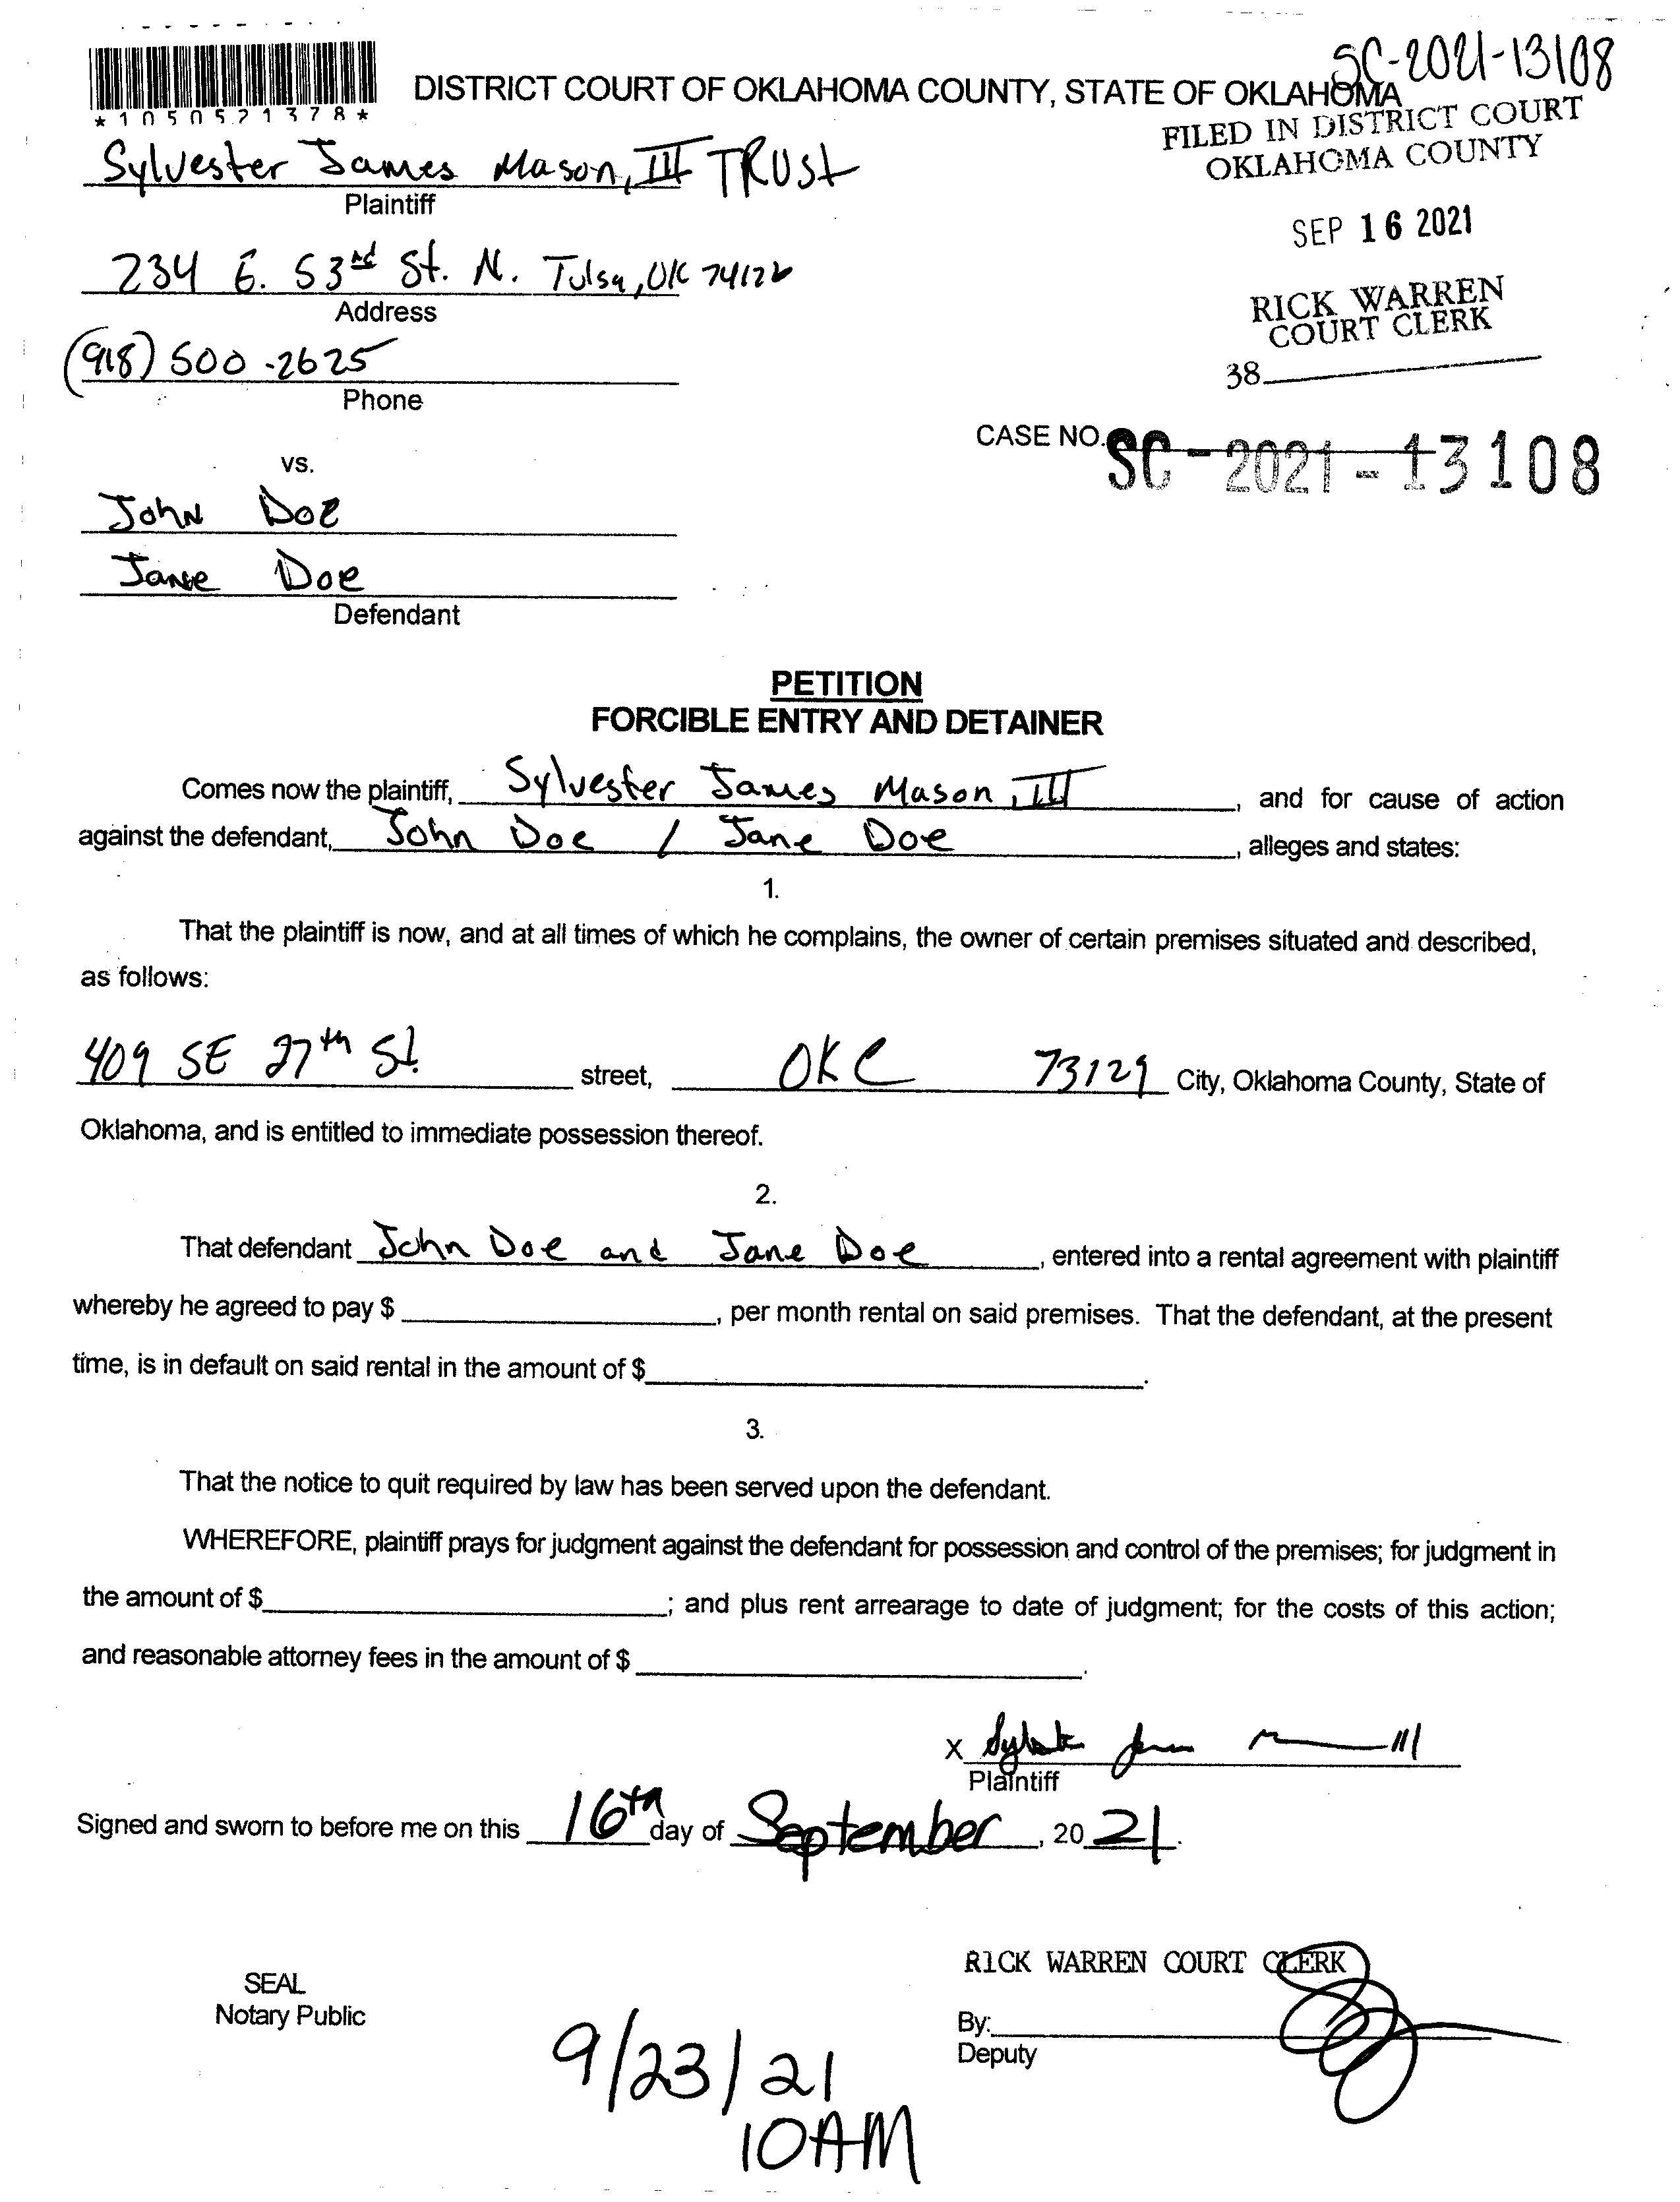 SC-2021-13108
DISTRICT COURT OF OKLAHOMA COUNTY, STATE OF OKLAHOMA
*1050521378*
FILED IN DISTRICT COURT
OKLAHOMA COUNTY
Sylvester James Mason, III TRUST
Plaintiff
SEP 16 2021
234 E. 53rd St. N. Tulsa, OK 74126
Address
RICK WARREN
COURT CLERK
(918) 500-2625
Phone
38
CASE NO. SC-2021-13108
vs.
John Doe
Jane Doe
Defendant
PETITION
FORCIBLE ENTRY AND DETAINER
Comes now the plaintiff, Sylvester James Mason, III, and for cause of action
against the defendant, John Doe / Jane Doe, alleges and states:
1.
That the plaintiff is now, and at all times of which he complains, the owner of certain premises situated and described,
as follows:
409 SE 27th St. street, OKC 73129 City, Oklahoma County, State of
Oklahoma, and is entitled to immediate possession thereof.
2.
That defendant John Doe and Jane Doe, entered into a rental agreement with plaintiff
whereby he agreed to pay $ , per month rental on said premises. That the defendant, at the present
time, is in default on said rental in the amount of $ .
3.
That the notice to quit required by law has been served upon the defendant.
WHEREFORE, plaintiff prays for judgment against the defendant for possession and control of the premises; for judgment in
the amount of $ ; and plus rent arrearage to date of judgment; for the costs of this action;
and reasonable attorney fees in the amount of $ .
X
Plaintiff
Signed and sworn to before me on this 16th day of September, 2021.
RICK WARREN COURT CLERK
SEAL
Notary Public
By:
Deputy
9/23/21
10AM